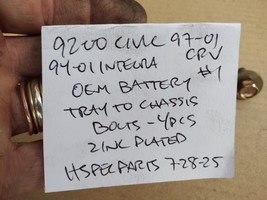 9200 CIVIC 97-01
94-01 INTEGRA CRV
OEM BATTERY #1
TRAY TO CHASSIS
BOLTS - 4PCS
ZINC PLATED
HSPECPARTS 7-28-25